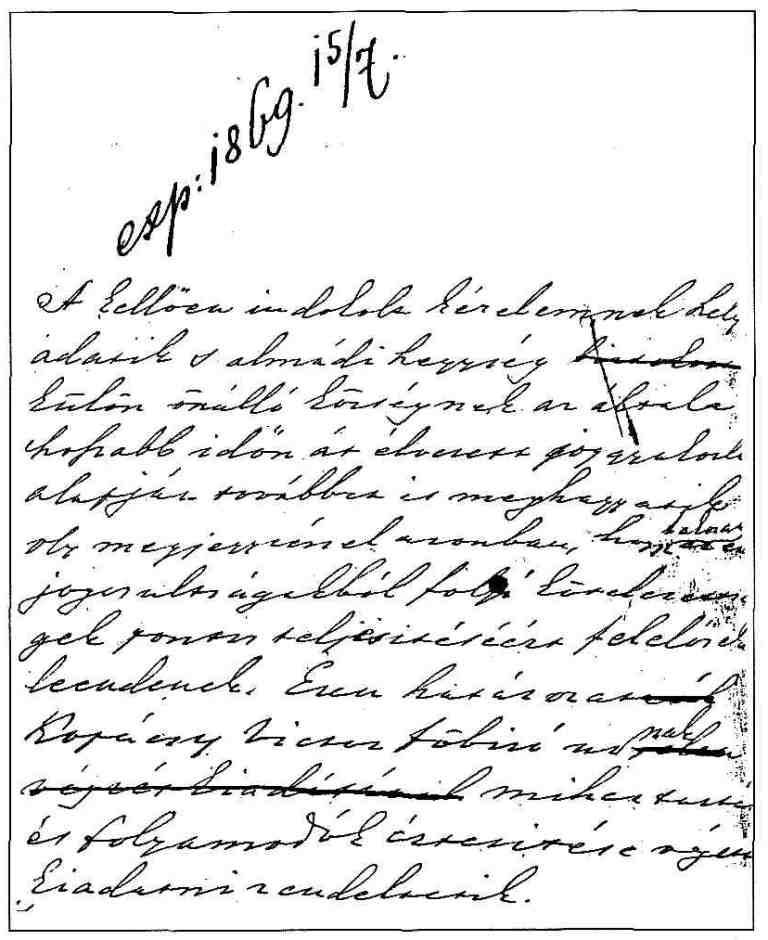 exp: 1869. 15/7.
A kellően indokolt kérelemnek hely
adatik s almádi hegység
külön önálló községnek az általa
hosabb időn át élvezett jogga
alapján továbbra is meghagyatik
oly megjegyzéssel azonban, hogy
jogosultságakból folyó kötelezett
gek pontos teljesitéséért felelősek
leendenek. Ezen határozat
Kopácsy Victor főbiró ur nak
végzés kiadásának mihez tartás
és folyamodók értesitése végett
kiadatni rendeltetik.